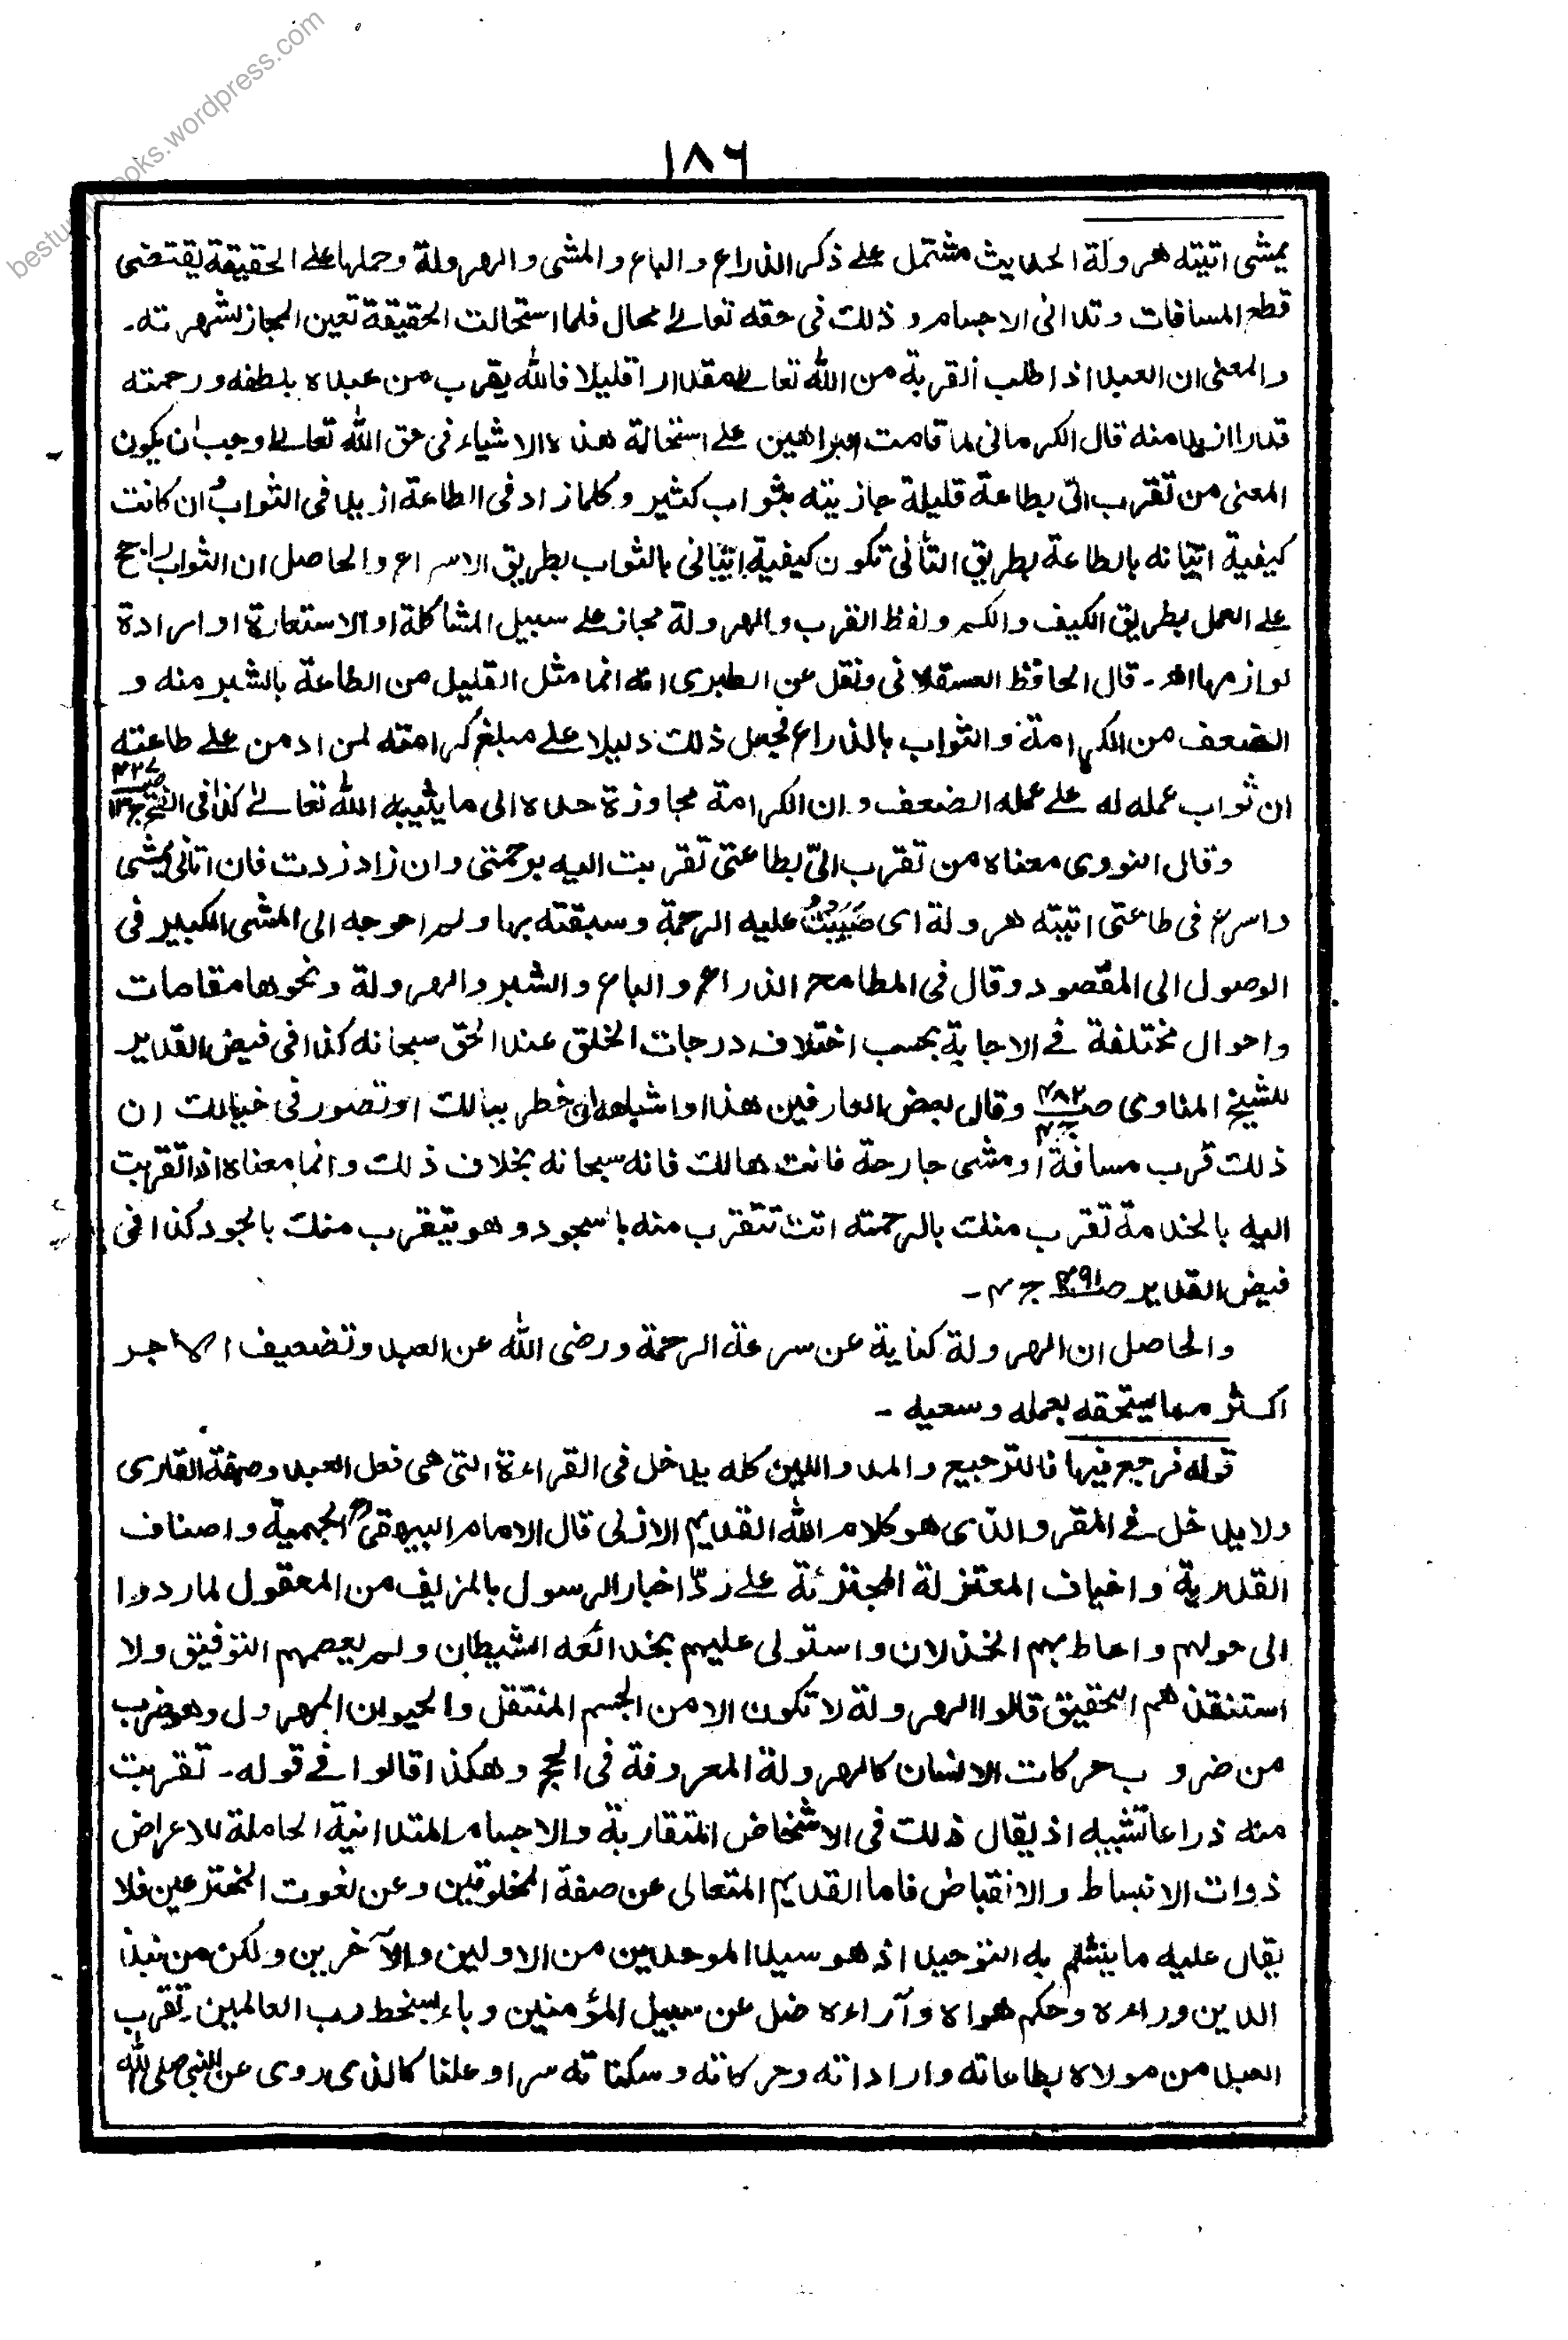 besturdubooks.wordpress.com
١٨٦
يمشى اتيته هرولة الحديث مشتمل على ذكر الذراع والباع والمشى والهرولة وحملها على الحقيقة يقتضى
قطع المسافات وتدانى الاجسام وذلك فى حقه تعالى محال فلما استحالت الحقيقة تعين المجاز لشهرته۔
والمعنى ان العبد اذا طلب القربة من الله تعالى مقدارا قليلا فالله يقرب من عبده بلطفه ورحمته
قدرا ازيد منه قال الكرمانى لما قامت البراهين على استحالة هذه الاشياء فى حق الله تعالى وجب ان يكون
المعنى من تقرب الىّ بطاعة قليلة جازيته بثواب كثير وكلما زاد فى الطاعة ازيد فى الثواب وان كانت
كيفية اتيانه بالطاعة بطريق التأنى تكون كيفية اتيانى بالثواب بطريق الاسراع والحاصل ان الثواب راجح
على العمل بطريق الكيف والكم ولفظ القرب والهرولة مجاز على سبيل المشاكلة او الاستعارة او ارادة
لوازمها اھ۔ قال الحافظ العسقلانى ونقل عن الطبرى انه انما مثل القليل من الطاعة بالشبر منه و
الضعف من الكرامة والثواب بالذراع فجعل ذلك دليلا على مبلغ كرامته لمن ادمن على طاعته
ان ثواب عمله له على عمله الضعف وان الكرامة مجاوزة حده الى ما يثيبه الله تعالى كذا فى الفتح ص٤٢٧ ج١٣
وقال النووى معناه من تقرب الىّ بطاعتى تقربت اليه برحمتى وان زاد زدت فان اتانى يمشى
واسرع فى طاعتى اتيته هرولة اى صَبَبْتُ عليه الرحمة وسبقته بها ولم احوجه الى المشى الكبير فى
الوصول الى المقصود وقال فى المطامح الذراع والباع والشبر والهرولة ونحوها مقامات
واحوال مختلفة فى الاجابة بحسب اختلاف درجات الخلق عند الحق سبحانه كذا فى فيض القدير
للشيخ المناوى ص٤٨٢ ج٤ وقال بعض العارفين هذا او اشباهه ان خطر ببالك او تصور فى خيالك ان
ذلك قرب مسافة او مشى جارحة فانت هالك فانه سبحانه بخلاف ذلك وانما معناه انه اذا تقربت
اليه بالخدمة تقرب منك بالرحمته انت تتقرب منه بالسجود وهو يتقرب منك بالجود كذا فى
فيض القدير ص٤٩١ ج٤۔
والحاصل ان الهرولة كناية عن سرعة الرحمة ورضى الله عن العبد وتضعيف الاجر
اكثر مما يستحقه بعمله وسعيه۔
قوله فرجع فيها فالترجيع والمد واللين كله يدخل فى القراءة التى هى فعل العبد وصفة القارى
ولا يدخل فى المقرو الذى هو كلام الله القديم الازلى قال الامام البيهقى الجهمية واصناف
القدرية واخياف المعتزلة المجتزئة على ردّ اخبار الرسول بالمزيف من المعقول لما ردوا
الى حولهم واحاط بهم الخذلان واستولى عليهم بخدائعه الشيطان ولم يعصمهم التوفيق ولا
استنقذهم التحقيق قالوا الهرولة لا تكون الا من الجسم المنتقل والحيوان المهرول وهو ضرب
من ضروب حركات الانسان كالهرولة المعروفة فى الحج وهكذا قالوا فى قوله۔ تقربت
منه ذراعا تشبيه اذ يقال ذلك فى الاشخاص المتقاربة والاجسام المتدانية الحاملة للاعراض
ذوات الانبساط والانقباض فاما القديم المتعالى عن صفة المخلوقين وعن نعوت المخترعين فلا
يقال عليه ما ينثلم به التوحيد اذ هو سيد الموحدين من الاولين والآخرين ولكن من نبذ
الدين وراءه وحكم هواه وآراءه ضل عن سبيل المؤمنين وباء بسخط رب العالمين۔ تقرب
العبد من مولاه بطاعاته واراداته وحركاته وسكناته سرا وعلنا كالذى روى عن النبى صلى الله